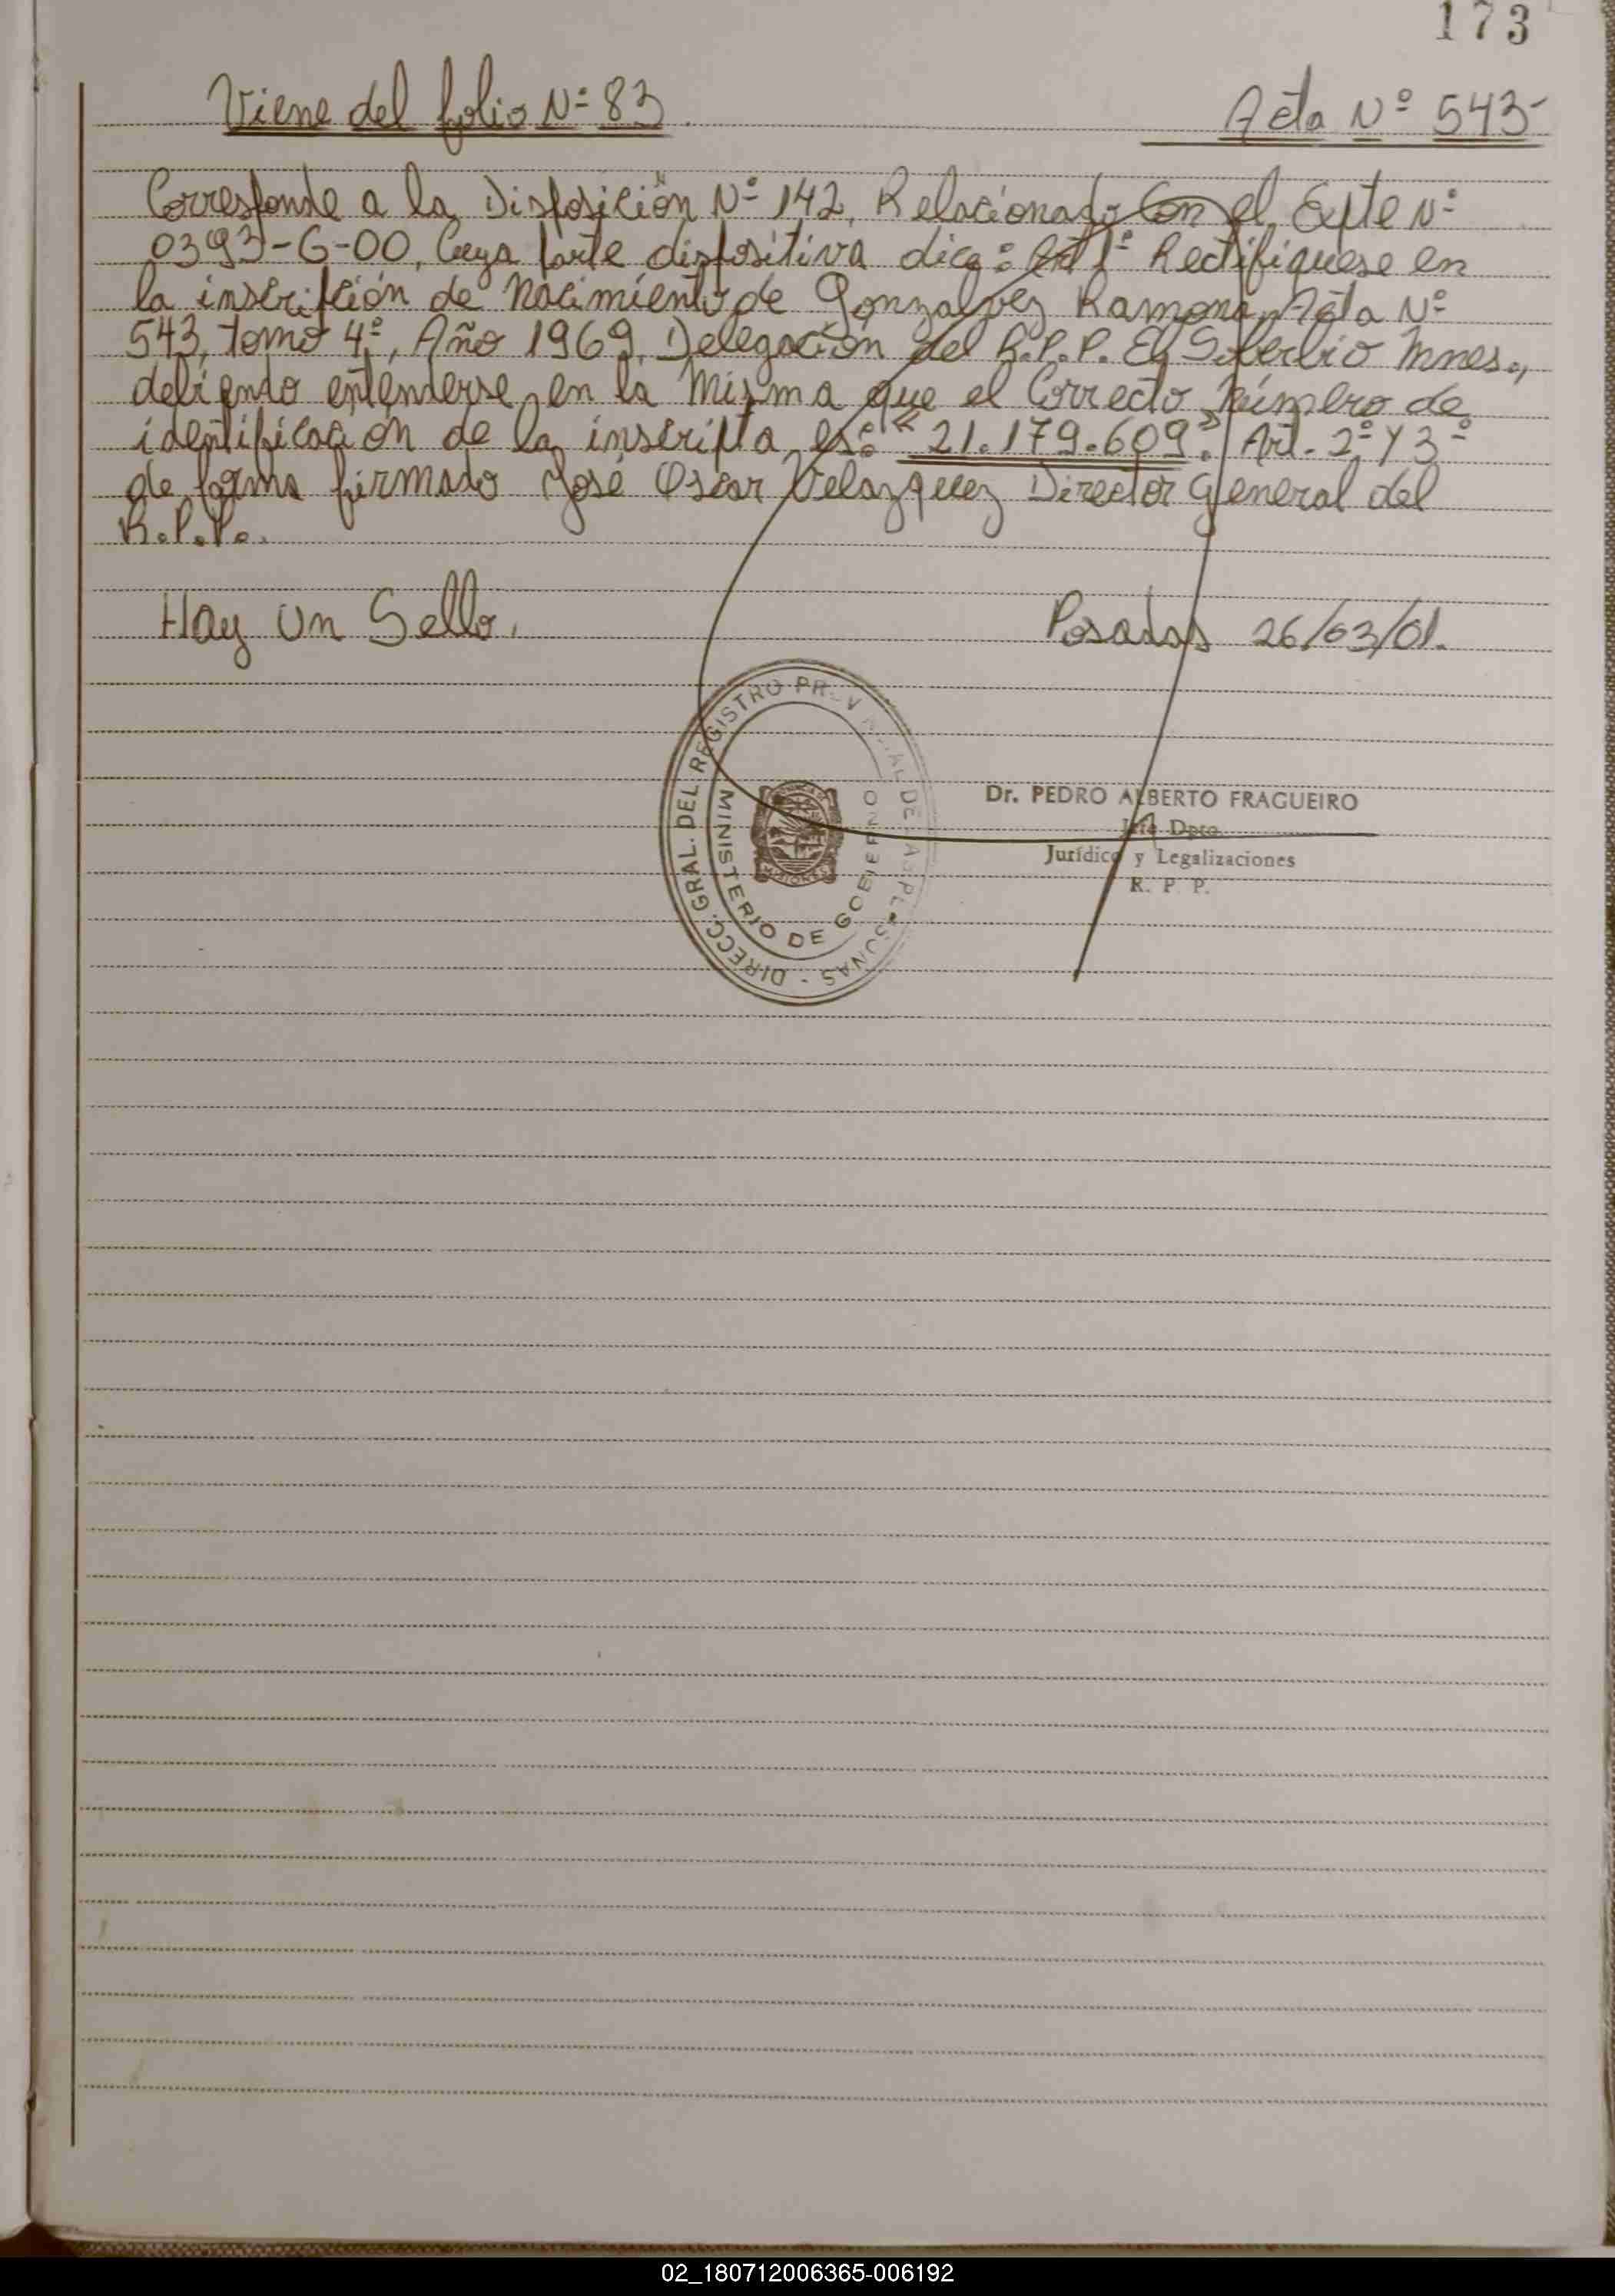 173
Viene del folio Nº 83.
Acta Nº 543-
Corresponde a la Disposición Nº 142, Relacionado Con el Expte Nº
0393-G-00, Cuya parte dispositiva dice: Art 1º Rectifiquese en
la inscripción de Nacimiento de Gonzalvez Ramona, Acta Nº
543, tomo 4º, Año 1969, Delegación del R.P.P. El Soberbio Mnes.,
debiendo entenderse en la Misma que el Correcto Número de
identificación de la inscripta es: "21.179.609". Art. 2º y 3º
de forma firmado José Oscar Velazquez Director General del
R.P.P.
Hay Un Sello.
Posadas 26/03/01.
DIRECC. GRAL. DEL REGISTRO PROVINCIAL DE LAS PERSONAS -
MINISTERIO DE GOBIERNO
MISIONES
Dr. PEDRO ALBERTO FRAGUEIRO
Jefe Dpto.
Jurídico y Legalizaciones
R. P. P.
02_180712006365-006192